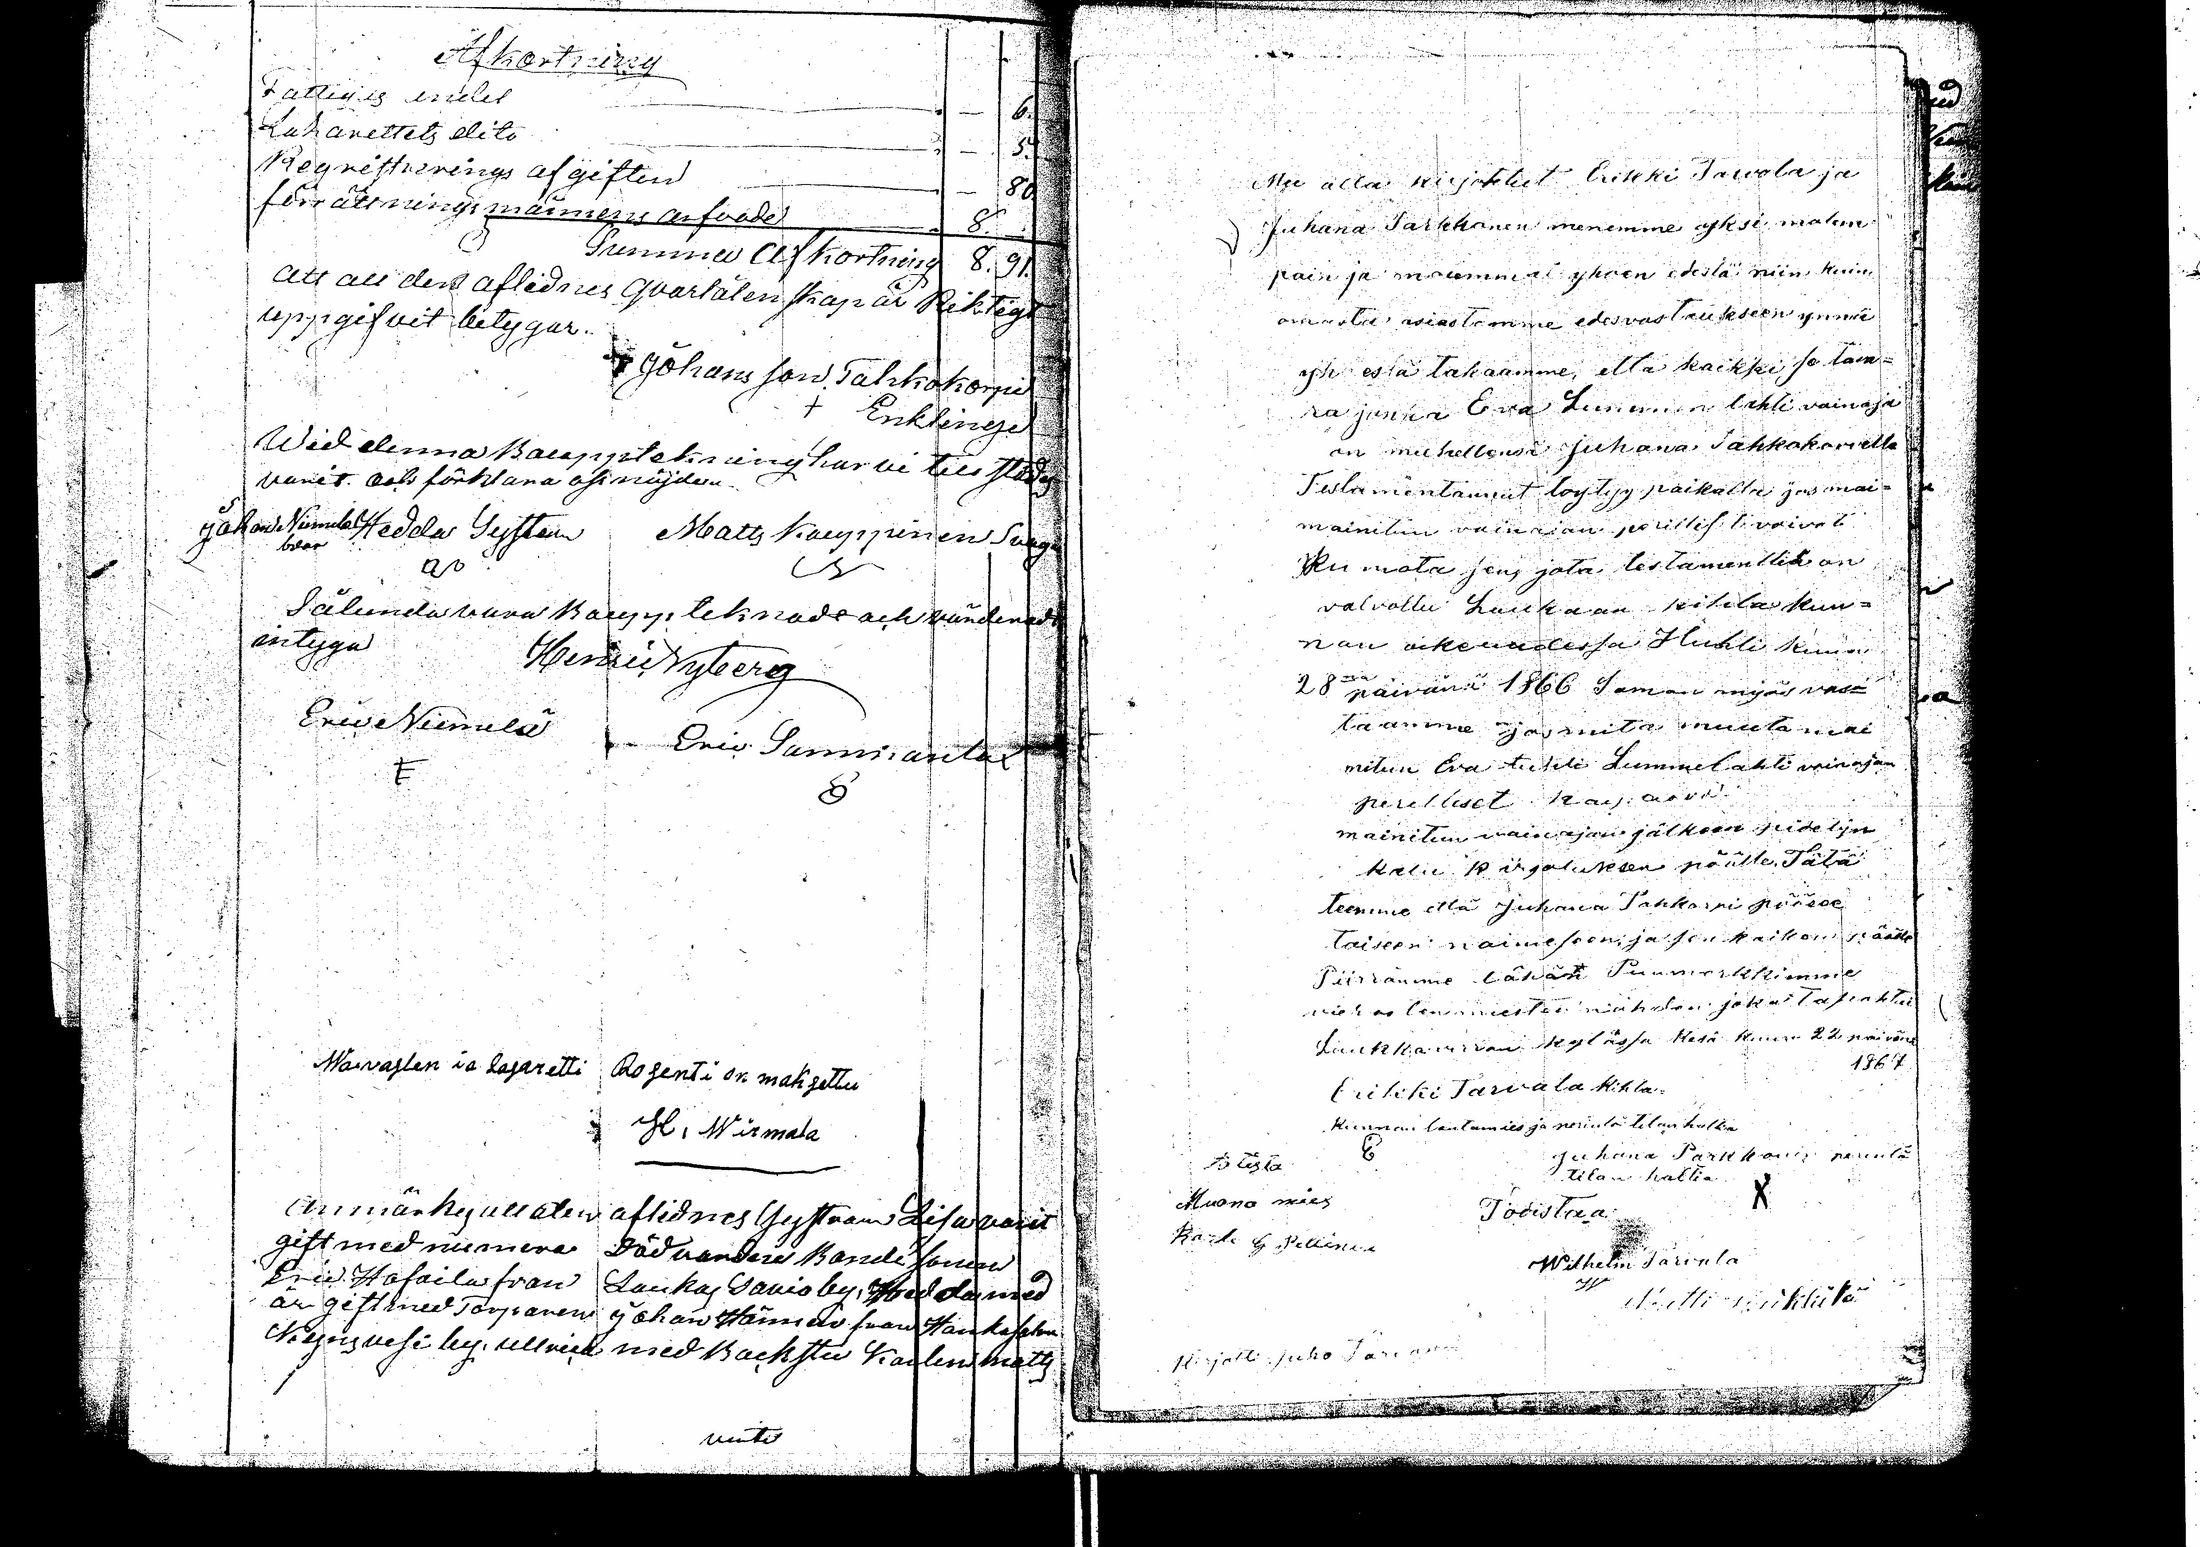 Afkortning
Fattigas andel — 6.
Lazarettets dito — 5.
Registrerings afgiften — 80
förrättnings männens arfvode 8.
Summa Afkortning 8. 91.
Att all den aflidnes qvarlåtenskap är Riktigt
uppgifvit betygar.
Johansson Tahkokorpi
+ Enklinge
Wid denna Bouppteckning har vi tillstädes
varit och förklara oss nöjda.
Johan Niemelä Hedda Systern Matts Kauppinen Svåger
Sålunda vara Bouppteknade och värderade
intyga
Henric Nyberg
Eric Niemelä Eric
E
Waivasten ia lasaretti Rosenti on maksettu
H. Wirmala
Anmärkes att den aflidnes Systrar Lisa varit
gift med numera Död vordne Bonde Sonen
Eric Hasaila från Laukas Savio by, Hedda med
är gift med Torparen Johan Hänninen från Hankasalmi
Niemisvesi by. Ullrica med Backstu Karlen Matts
vänd
Me alla kirjoitetut Erikki Tarvala ja
Juhana Parkkonen menemme yksi molem
pain ja molemmat yhden edestä niin kuin
omasta asiastamme edesvastaukseen ynnä
yh essä takaamme, että kaikki se tava=
ra jonka Eva Lummelahti vainaja
on miehellensä Juhana Tahkokorvella
Testamentannut löytyy paikalla jos mai=
mainitun vainajan perilliset voivat
Ku mota sen, jota testamenttia on
valvottu Laukaan kihla kun=
nan oikeudessa Huhti kuun
28 päivänä 1866 Saman myös vas=
taamme jos mitä muuta mai
nitun Eva Lummelahti vainajan
perilliset
mainitun vainajan jälkeen pidetyn
kalu kirjoituksen päälle. Tätä
teemme että Juhana Tahkorpi pääsee
toiseen naimiseen, ja sen kaiken päälle
Piirrämme tähän Puumerkkimme
vieras ten miesten nähden joka Tapahtui
Laukkavirran kylässä Kesä kuun 22 päivänä
1867
Erikki Tarvala kihla=
kunnan lautamies ja perintö tilan haltia
E Juhana Parkkonen perintö
tilan haltia
X
Muona mies Todistaa
Karle G Pellinen
Wilhelm Tarvala
W
Matti
Kirjotti Juho